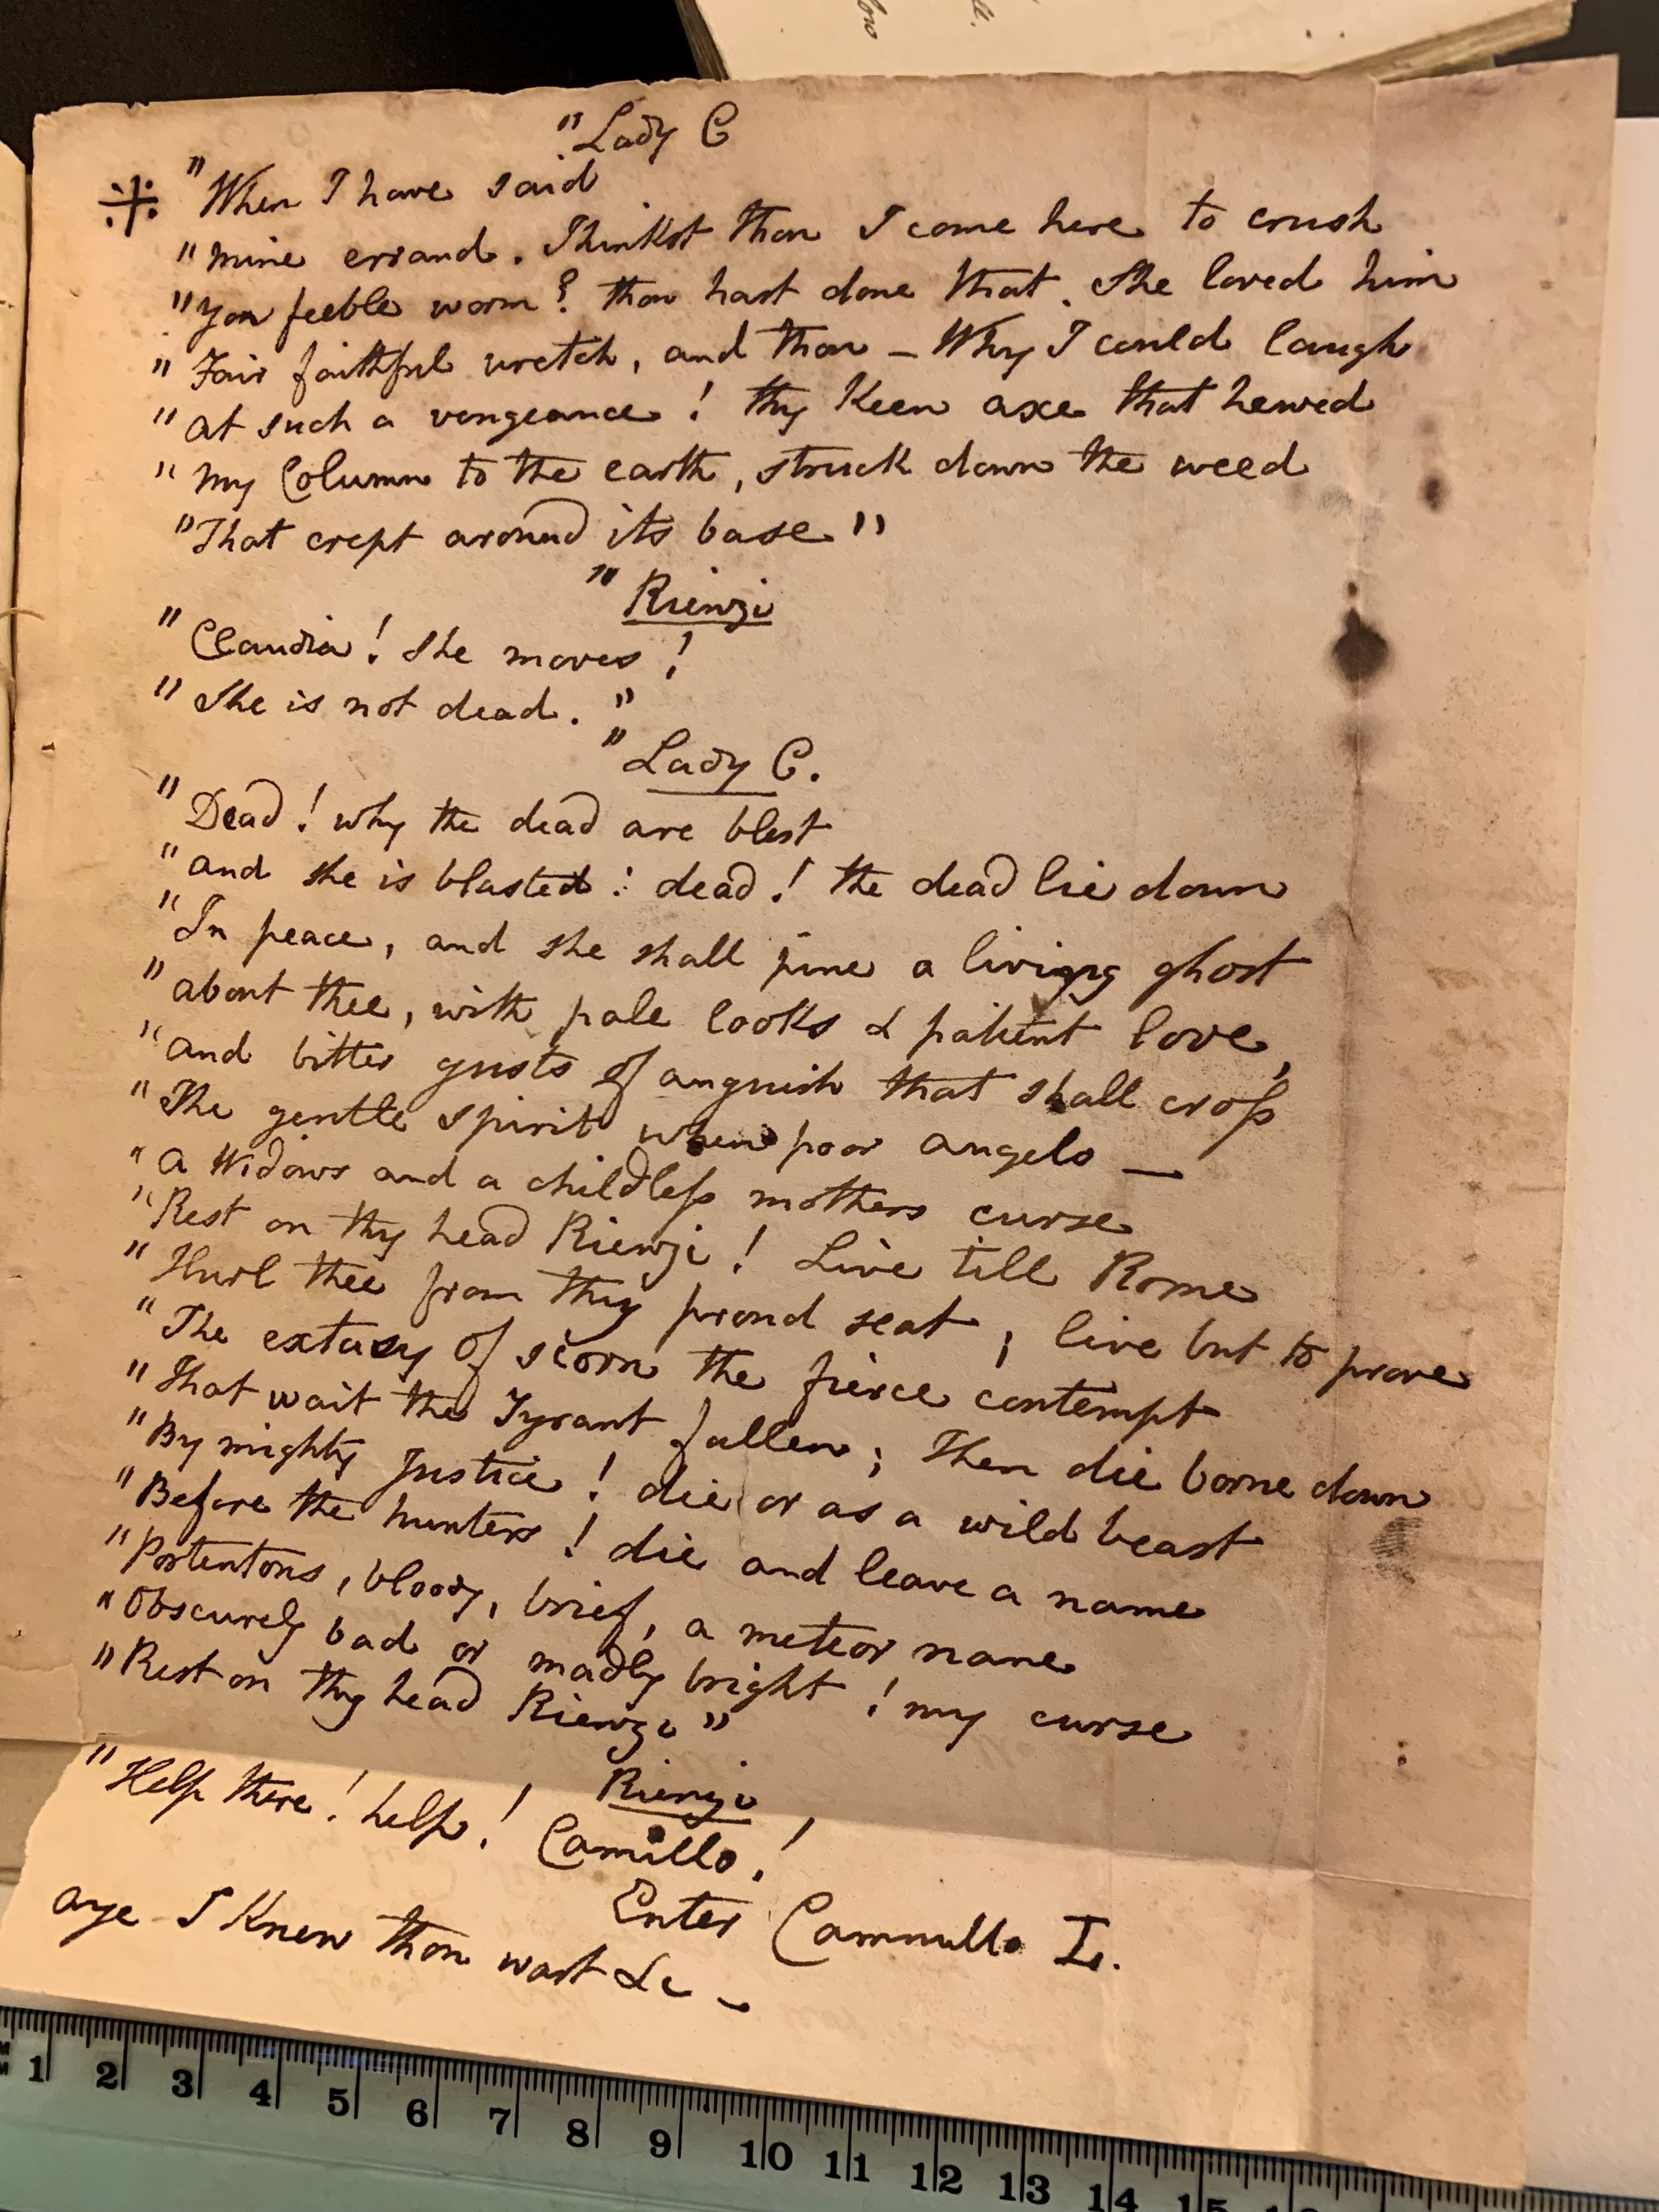 "Lady C
※ "When I have said
"mine errand. Thinkst thou I come here to crush
"yon feeble worm? thou hast done that. She loved him
"Fair faithful wretch, and thou – Why I could laugh
"at such a vengeance! thy Keen axe that hewed
"my Column to the earth, struck down the weed
"That crept around its base"
"Rienzi
"Claudia! She moves!
"She is not dead."
"Lady C.
"Dead! why the dead are blest
"and she is blasted: dead! the dead lie down
"In peace, and she shall pine a living ghost
"about thee, with pale looks & patient love,
"and bitter gusts of anguish that shall cross
"The gentle spirit when poor angelo —
"a Widows and a childless mothers curse
"Rest on thy head Rienzi! Live till Rome
"Hurl thee from thy proud seat, live but to prove
"The extasy of scorn the fierce contempt
"That wait the Tyrant fallen; Then die borne down
"By mighty Justice! die or as a wild beast
"Before the hunters! die and leave a name
"Portentous, bloody, brief, a meteor name
"Obscurely bad or madly bright! my curse
"Rest on thy head Rienzi"
Rienzi
"Help there! help! Camillo!
Enter Cammillo L.
aye I Knew thou wast &c –
1 2 3 4 5 6 7 8 9 10 11 12 13 14 15